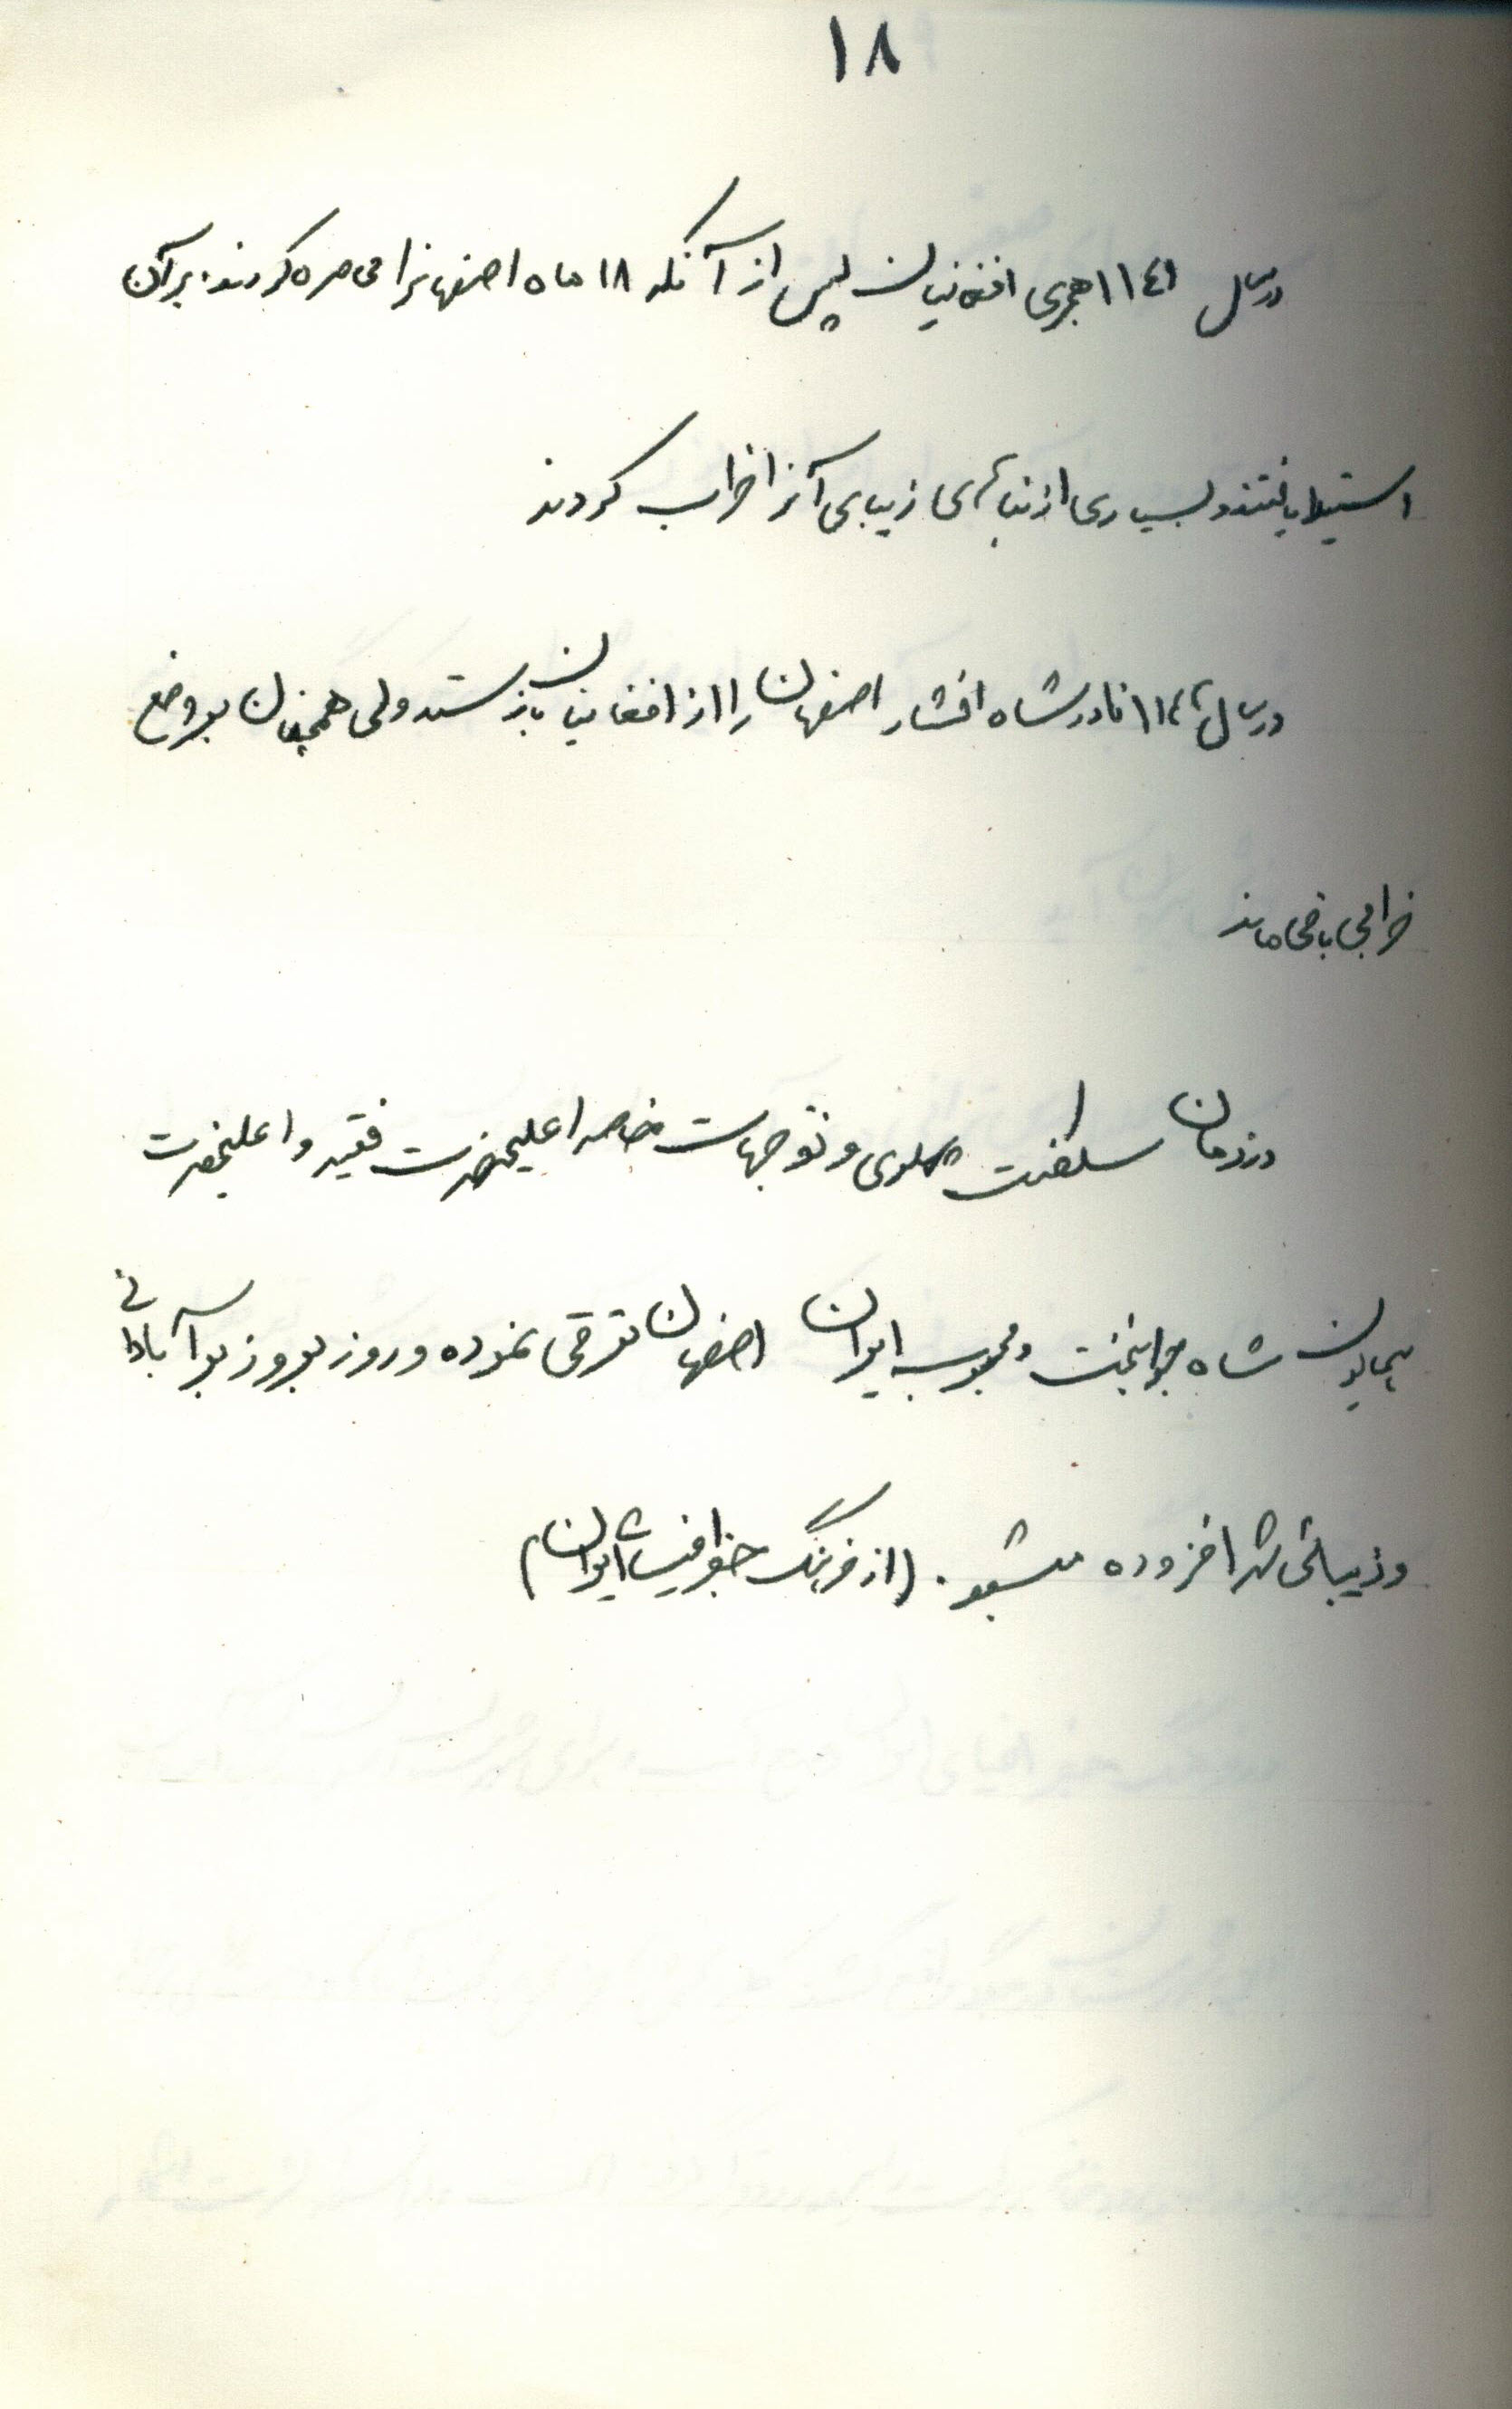 ۱۸
در سال ۱۱٤۱ هجری افغانیان پس از آنکه ۱۸ ماه اصفهانرا محاصره کردند بر آن
استیلا یافتند و بسیاری از بناهای زیبای آنرا خراب کردند
در سال نادر شاه افشار اصفهان را از افغانیان باز ستد ولی همچنان بر وضع
خرابی باقی ماند
در زمان سلطنت پهلوی و توجهات خاصه اعلیحضرت فقید و اعلیحضرت
همایون شاه جوانبخت و محبوب ایران اصفهان ترقی نموده و روز بروز بر آبادانی
و زیبائی شهر افزوده میشود. (از فرهنگ جغرافیائی ایران)